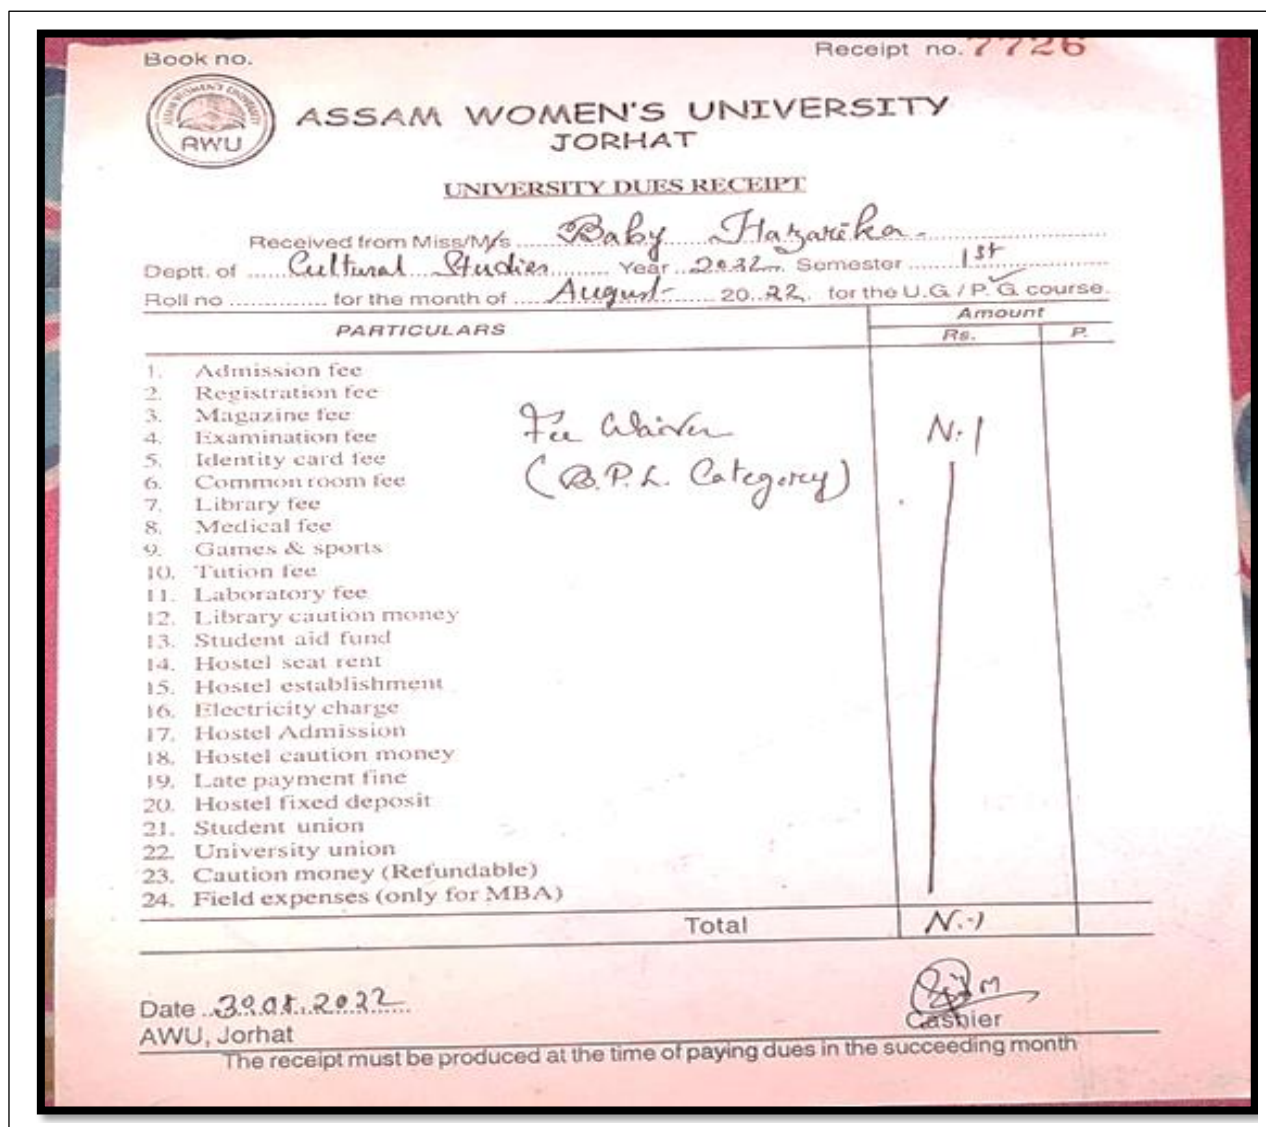 Book no.
Receipt no. 7726
ASSAM WOMEN'S UNIVERSITY
AWU
ASSAM WOMEN'S UNIVERSITY
JORHAT
UNIVERSITY DUES RECEIPT
Received from Miss/M/s Baby Hazarika
Deptt. of Cultural Studies Year 2022 Semester 1st
Roll no for the month of August 2022 for the U.G. / P.G. course.
PARTICULARS Amount
Rs. P.
1. Admission fee
2. Registration fee
3. Magazine fee Fee Waiver Nil
4. Examination fee
5. Identity card fee (B.P.L. Category)
6. Common room fee
7. Library fee
8. Medical fee
9. Games & sports
10. Tution fee
11. Laboratory fee
12. Library caution money
13. Student aid fund
14. Hostel seat rent
15. Hostel establishment
16. Electricity charge
17. Hostel Admission
18. Hostel caution money
19. Late payment fine
20. Hostel fixed deposit
21. Student union
22. University union
23. Caution money (Refundable)
24. Field expenses (only for MBA)
Total Nil
Date 30.08.2022
AWU, Jorhat
Cashier
The receipt must be produced at the time of paying dues in the succeeding month